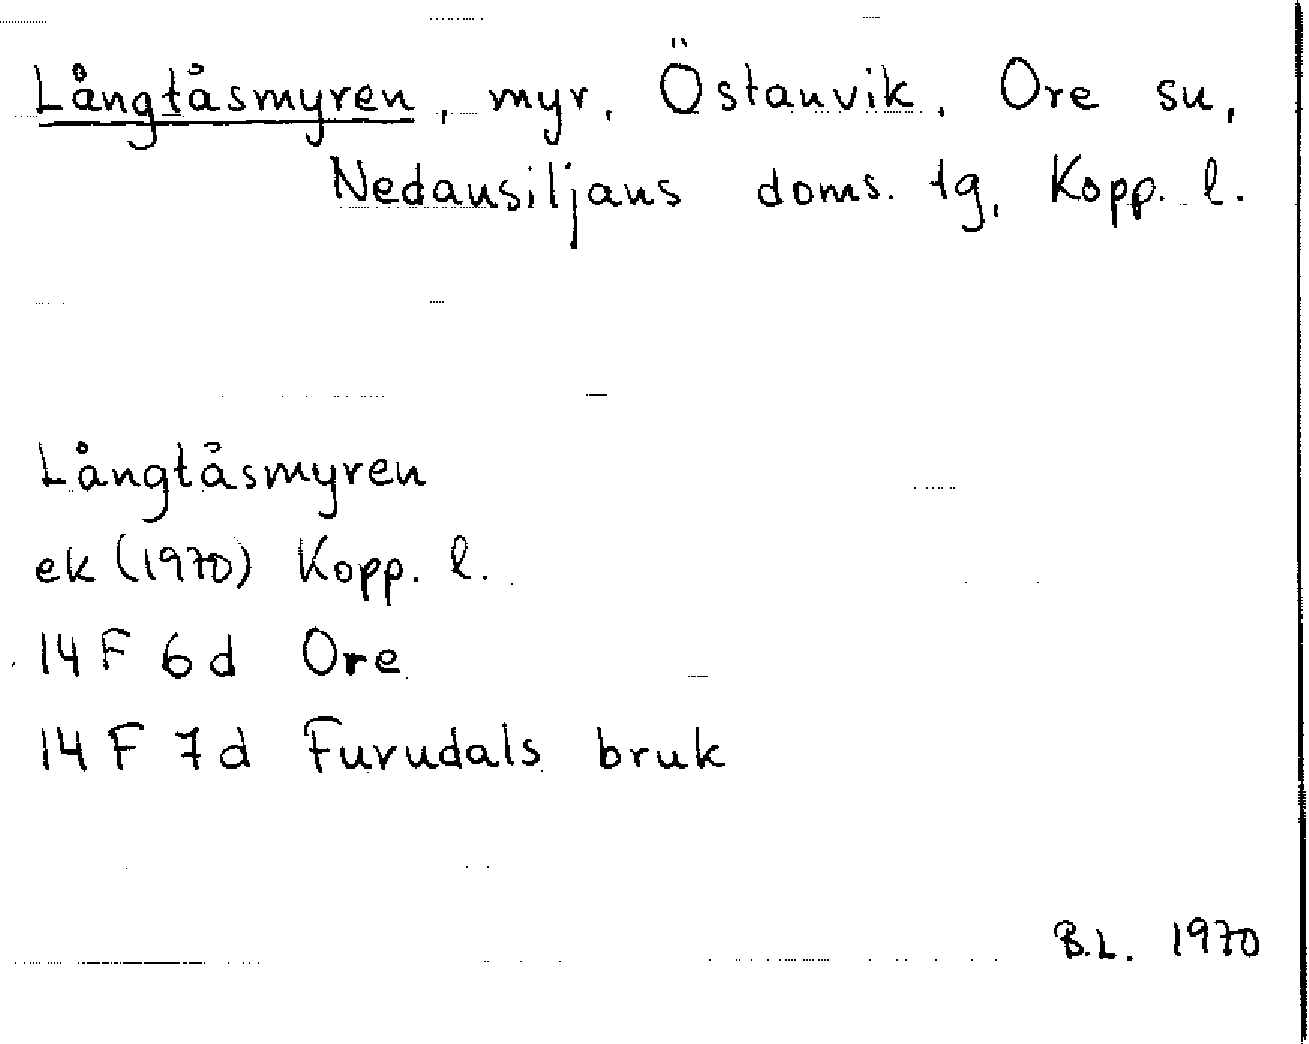 Långtåsmyren, myr, Östanvik, Ore sn,
Nedansiljans doms. tg, Kopp. l.
Långtåsmyren
ek (1970) Kopp. l.
14 F 6 d Ore
14 F 7 d Furudals bruk
B.L. 1970